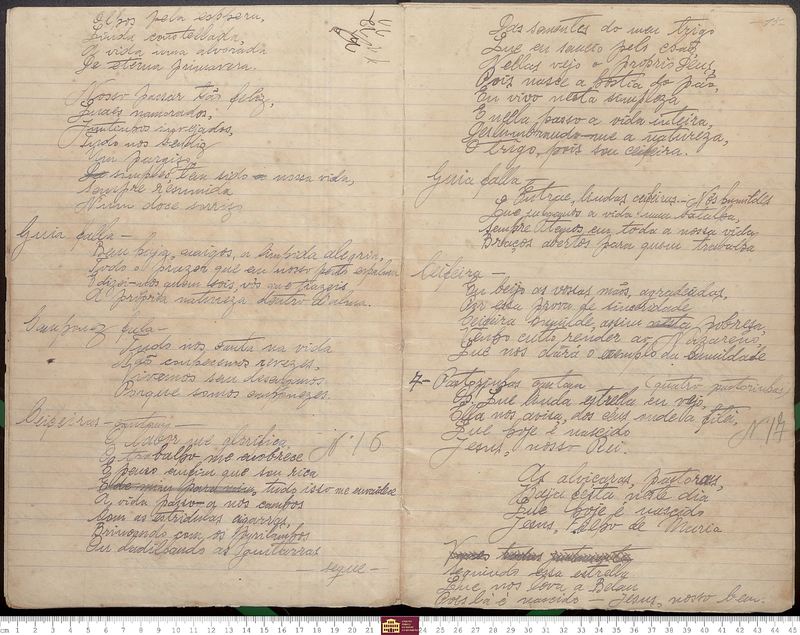 Elhos pela esphera,
Linda constellada,
A vida uma alvorada
De eterna primavera.
Nosso passar tão feliz,
Lindos namorados,
Tudo nos bendiz
Um paraizo,
simples, tem sido a nossa vida,
Sempre resumida
N'um doce sorriso
Guia falla -
Bem haja, amigos, a limpida alegria,
Todo o prazer que em nosso peito espalma
E dizer-nos quem sois, vós que trazeis,
A própria natureza dentro d'alma.
Camponez falla -
Tudo nos canta na vida
Não conhecemos revezes,
Vivemos sem desenganos
Porque somos camponezes.
Ceifeiras - cantam -
O suor me glorifica
O trabalho me enobrece
Nº 16
E penso emfim que sou rica
tudo isso me
A vida passo-a nos campos
Com as estridulas cigarras,
Brincando com os pyrilampos
Ou dedilhando as guitarras
segue -
15-
Das sementes do meu trigo
Que eu sacco pelo chão,
N'ellas vejo o proprio Deus,
Pois nasce a hostia do pão,
Eu vivo nesta simpleza
E nella passo a vida inteira,
Deslumbrando-me a natureza,
O trigo, pois sou ceifeira.
Guia falla -
Entrae, lindas ceifeiras - Nós humildes
Que julgamos a vida uma batalha,
Sempre temos em toda a nossa vida
Braços abertos para quem trabalha
Ceifeira -
Eu beijo as vossas mãos, agradecidas,
Por essa prova de sinceridade
Ceifeira humilde, assim nesta pobresa,
Venho culto render ao Nazareno,
Que nos dará o exemplo da humildade
7 - Pastorinhas cantam (quatro pastorinhas)
Que linda estrella eu vejo,
Ella nos avisa, dos ceus
Nº 17
Que hoje é nascido
Jesus, nosso Rei.
As alviçaras, pastoras,
Haja festa neste dia
Que hoje é nascido
Jesus, Filho de Maria
Seguindo essa estrella
Que nos leva a Belem
Pois lá é nascido - Jesus, nosso bem.
cm 1 2 3 4 5 6 7 8 9 10 11 12 13 14 15 16 17 18 19 20 21 24 25 26 27 28 29 30 31 32 33 34 35 36 37 38 39 40 41 42 43 44 45